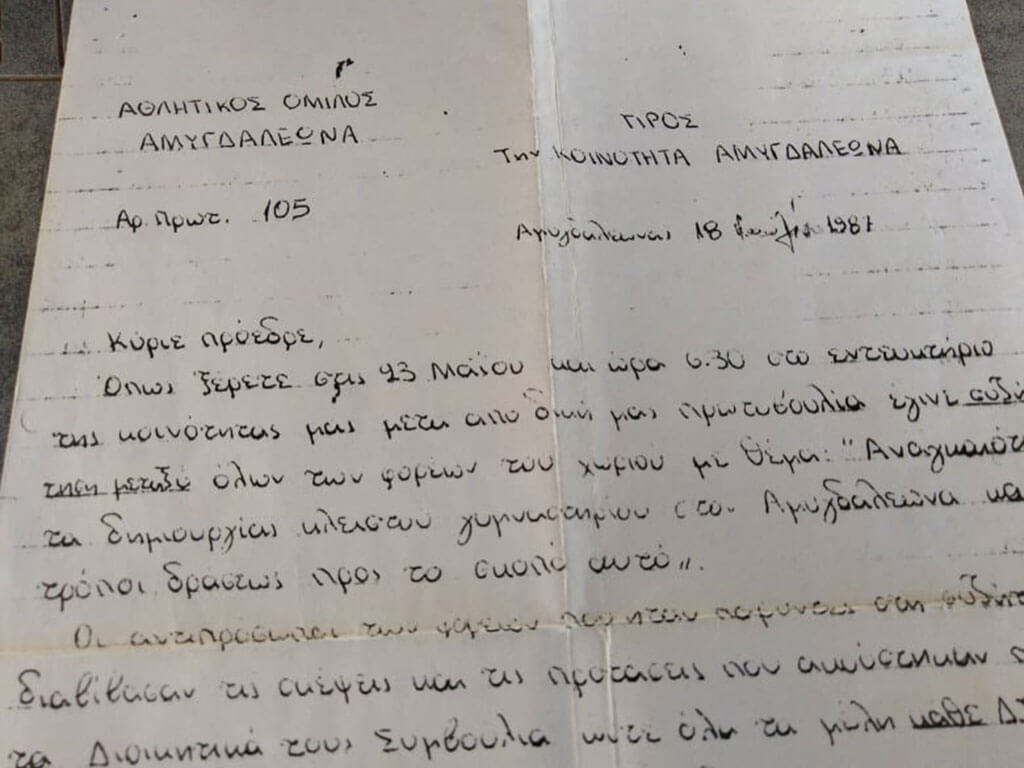 ΑΘΛΗΤΙΚΟΣ ΟΜΙΛΟΣ
ΑΜΥΓΔΑΛΕΩΝΑ
Αρ. Πρωτ. 105
ΠΡΟΣ
Την ΚΟΙΝΟΤΗΤΑ ΑΜΥΓΔΑΛΕΩΝΑ
Αμυγδαλεωνας 18 1987
Κύριε πρόεδρε,
Όπως ξέρετε στις 23 Μαΐου και ώρα 6.30 στο εντευκτήριο
της κοινότητας μας μετα από δική μας πρωτοβουλία έγινε συζή
τηση μεταξύ όλων των φορέων του χωριου με θέμα: "Αναγκαιότη
τα δημιουργίας κλειστου γυμναστηρίου στον Αμυγδαλεώνα και
τρόποι δράσεως προς το σκοπό αυτό".
Οι αντιπρόσωποι των φορέων που ηταν παρόντες στη συζήτη
διαβίβασαν τις σκέψεις και τις προτάσεις που ακούστηκαν
τα Διοικητικά τους Συμβουλια ώστε όλα τα μέλη κάθε Δ.Σ